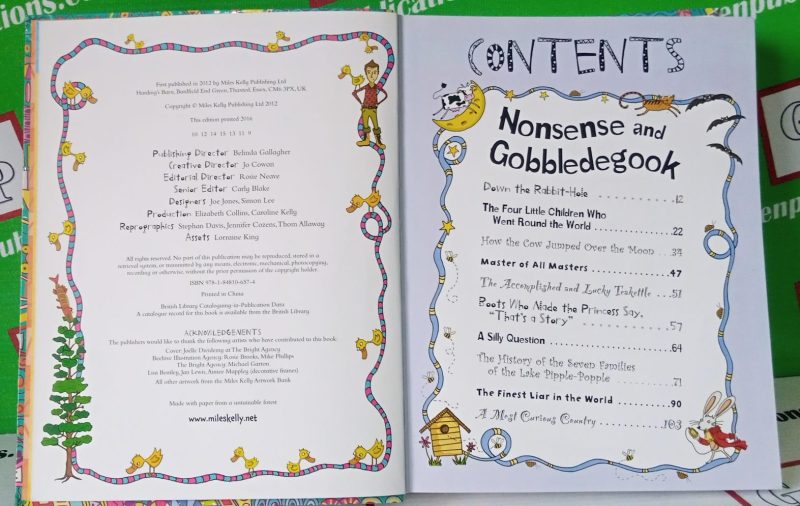 First published in 2012 by Miles Kelly Publishing Ltd
Harding's Barn, Bardfield End Green, Thaxted, Essex, CM6 3PX, UK
Copyright © Miles Kelly Publishing Ltd 2012
This edition printed 2016
10 12 14 15 13 11 9
Publishing Director Belinda Gallagher
Creative Director Jo Cowan
Editorial Director Rosie Neave
Senior Editor Carly Blake
Designers Joe Jones, Simon Lee
Production Elizabeth Collins, Caroline Kelly
Reprographics Stephan Davis, Jennifer Cozens, Thom Allaway
Assets Lorraine King
All rights reserved. No part of this publication may be reproduced, stored in a
retrieval system, or transmitted by any means, electronic, mechanical, photocopying,
recording or otherwise, without the prior permission of the copyright holder.
ISBN 978-1-84810-657-4
Printed in China
British Library Cataloguing-in-Publication Data
A catalogue record for this book is available from the British Library
ACKNOWLEDGEMENTS
The publishers would like to thank the following artists who have contributed to this book:
Cover: Joelle Dreidemy at The Bright Agency
Beehive Illustration Agency: Rosie Brooks, Mike Phillips
The Bright Agency: Michael Garton
Lisa Bentley, Jan Lewis, Aimee Mappley (decorative frames)
All other artwork from the Miles Kelly Artwork Bank
Made with paper from a sustainable forest
www.mileskelly.net
CONTENTS
Nonsense and
Gobbledegook
Down the Rabbit-Hole . . . . . . . . . . 12
The Four Little Children Who
Went Round the World . . . . . . . . . . 22
How the Cow Jumped Over the Moon . 34
Master of All Masters . . . . . . . . . . . . 47
The Accomplished and Lucky Teakettle . . 51
Boots Who Made the Princess Say,
"That's a Story" . . . . . . . . . . . . 57
A Silly Question . . . . . . . . . . . . . . . . 64
The History of the Seven Families
of the Lake Pipple-Popple . . . . . . . 71
The Finest Liar in the World . . . . . . . 90
A Most Curious Country . . . . . . . . . 103